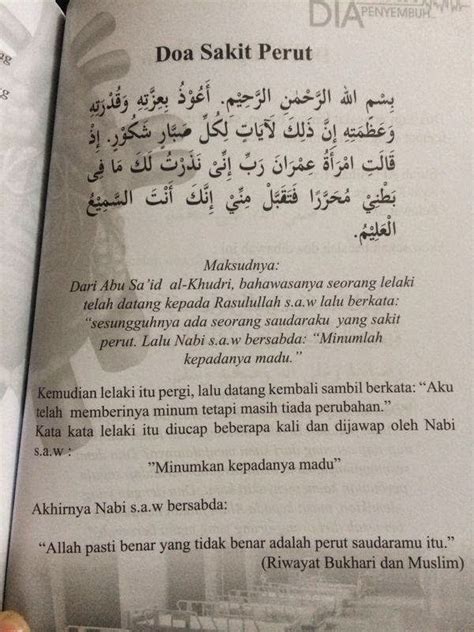 DIA PENYEMBUH
Doa Sakit Perut
بِسْمِ اللهِ الرَّحْمٰنِ الرَّحِيْمِ. أَعُوْذُ بِعِزَّتِهِ وَقُدْرَتِهِ
وَعَظَمَتِهِ إِنَّ ذٰلِكَ لَآيَاتٍ لِكُلِّ صَبَّارٍ شَكُوْرٍ. إِذْ
قَالَتِ امْرَأَةُ عِمْرَانَ رَبِّ إِنِّىْ نَذَرْتُ لَكَ مَا فِى
بَطْنِيْ مُحَرَّرًا فَتَقَبَّلْ مِنِّيْ إِنَّكَ أَنْتَ السَّمِيْعُ
الْعَلِيْمُ.
Maksudnya:
Dari Abu Sa'id al-Khudri, bahawasanya seorang lelaki
telah datang kepada Rasulullah s.a.w lalu berkata:
“sesungguhnya ada seorang saudaraku yang sakit
perut. Lalu Nabi s.a.w bersabda: “Minumlah
kepadanya madu.”
Kemudian lelaki itu pergi, lalu datang kembali sambil berkata: “Aku
telah memberinya minum tetapi masih tiada perubahan.”
Kata kata lelaki itu diucap beberapa kali dan dijawap oleh Nabi
s.a.w :
”Minumkan kepadanya madu”
Akhirnya Nabi s.a.w bersabda:
“Allah pasti benar yang tidak benar adalah perut saudaramu itu.”
(Riwayat Bukhari dan Muslim)